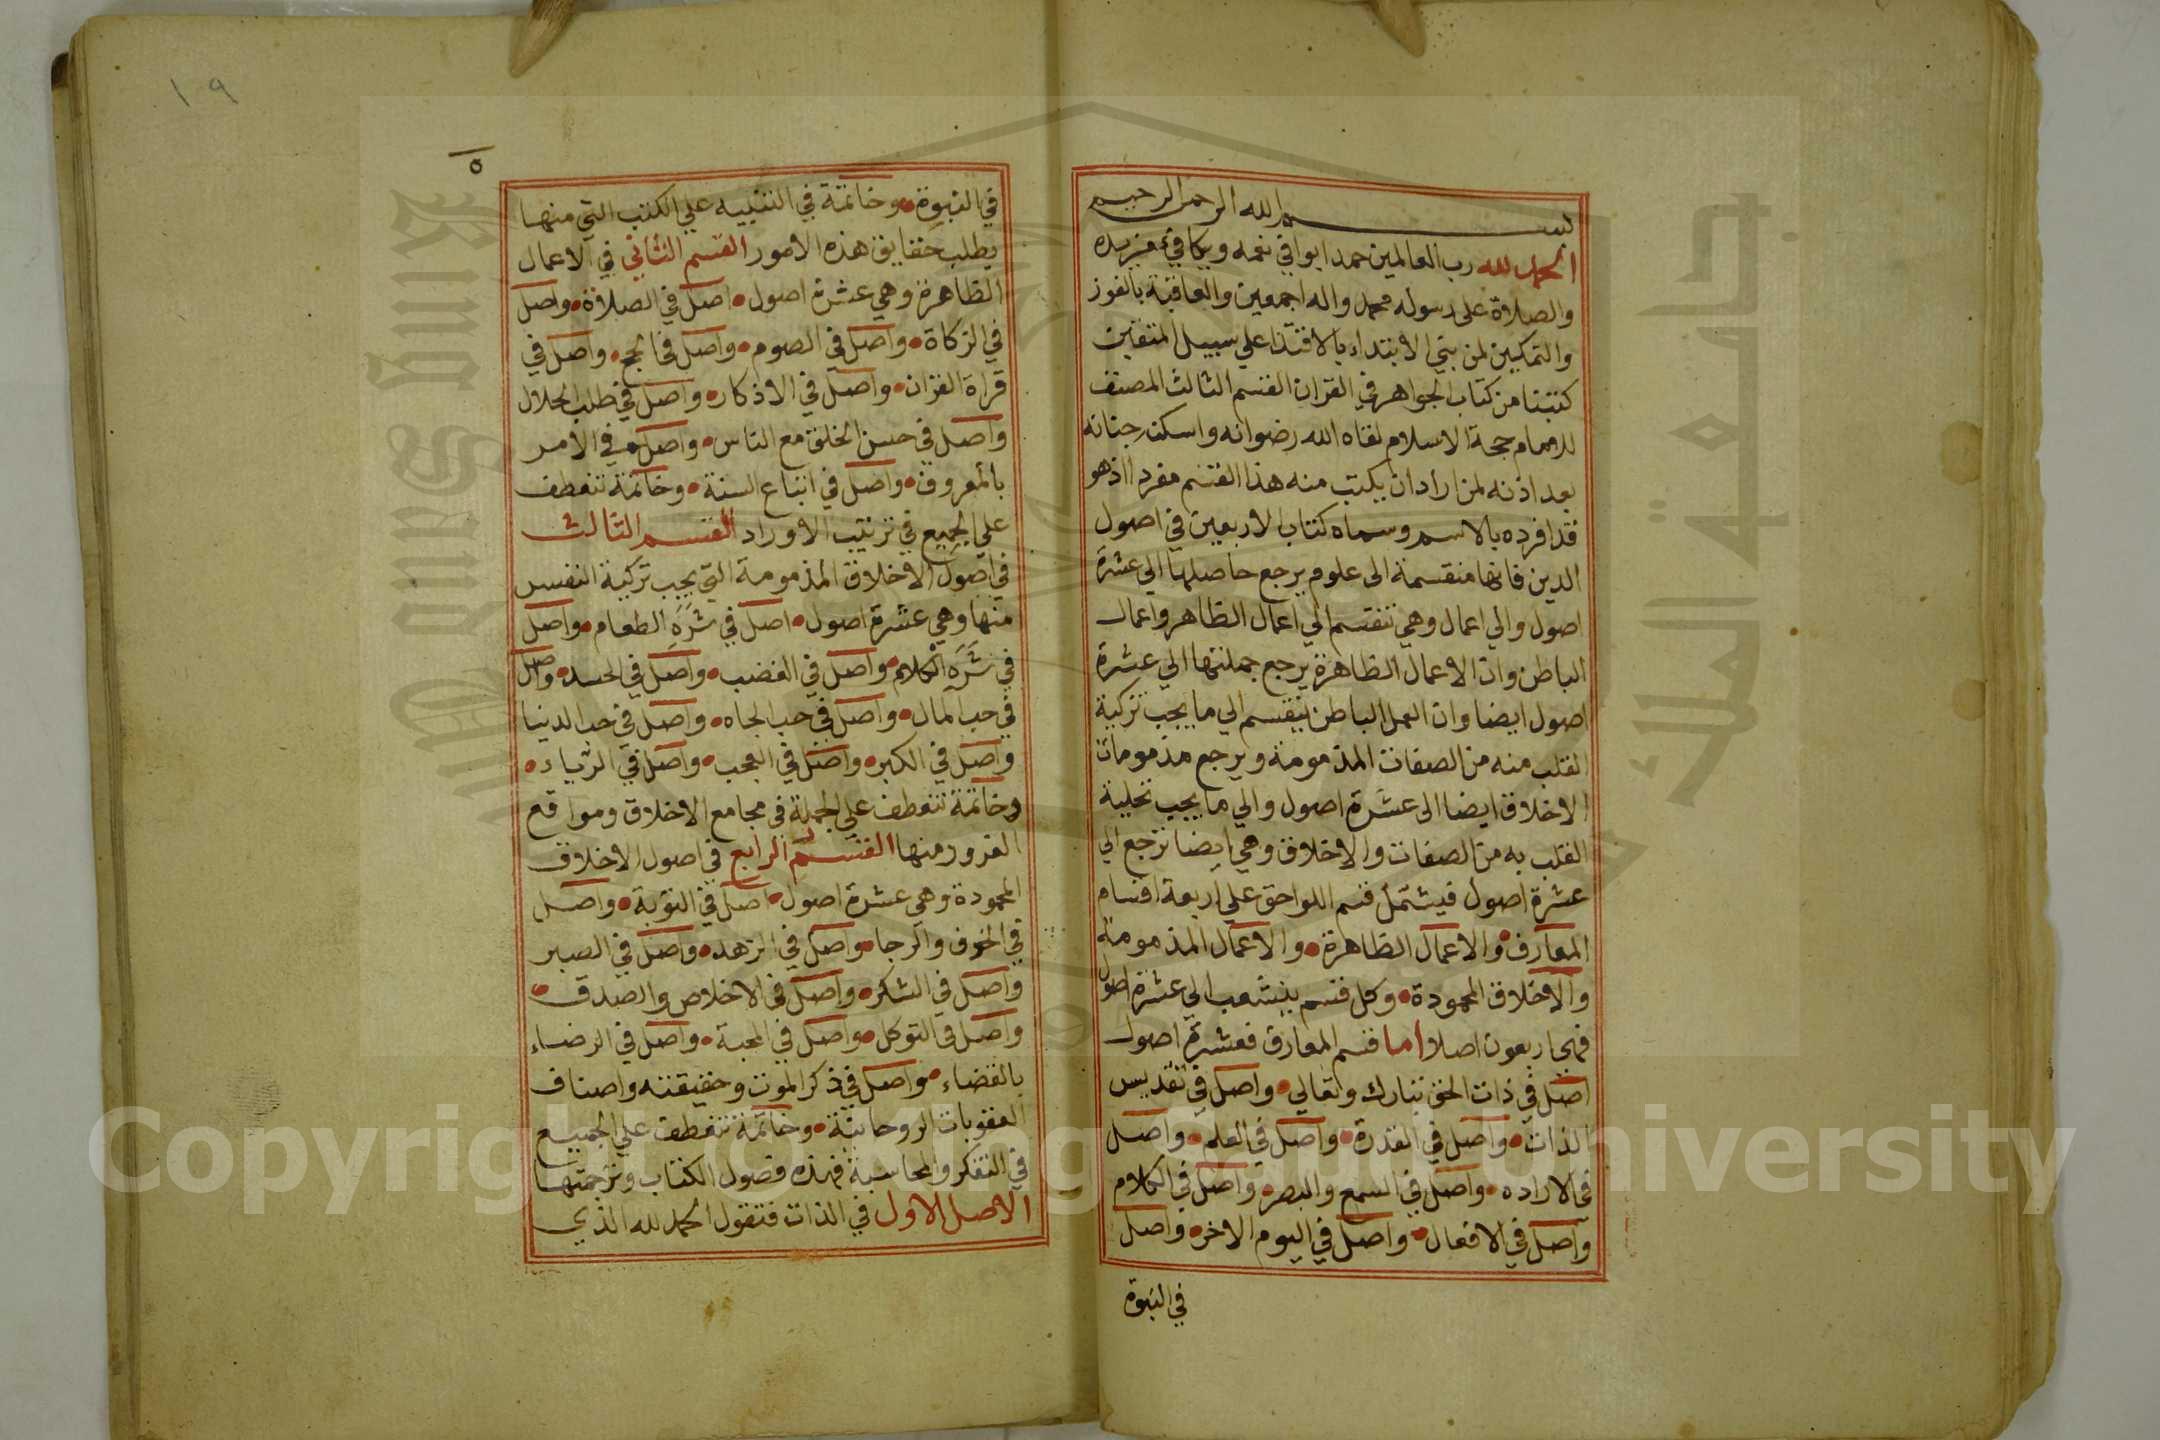 بسم الله الرحمن الرحيم
الحمد لله رب العالمين حمدا يوافي نعمه ويكافئ مزيده
والصلاة على رسوله محمد واله اجمعين والعاقبة بالفوز
والتمكين لمن بني الابتداء بالاقتدا علي سبيل المتقين
كتبنا من كتاب الجواهر في القران القسم الثالث المصنف
للامام حجة الاسلام لقاه الله رضوانه واسكنه جنانه
بعد اذنه لمن اراد ان يكتب منه هذا القسم مفردا اذ هو
قد افرده بالاسم وسماه كتاب الاربعين في اصول
الدين فانها منقسمة الى علوم يرجع حاصلها الي عشرة
اصول والي اعمال وهي تنقسم الي اعمال الظاهر واعمال
الباطن وان الاعمال الظاهرة يرجع جملتها الي عشرة
اصول ايضا وان العمل الباطن ينقسم الي ما يجب تزكية
القلب منه من الصفات المذمومة ويرجع مذمومات
الاخلاق ايضا الى عشرة اصول والي ما يجب تحلية
القلب به من الصفات والاخلاق وهي ايضا ترجع الي
عشرة اصول فيشتمل قسم اللواحق علي اربعة اقسام
المعارف والاعمال الظاهرة والاعمال المذمومة
والاخلاق المحمودة وكل قسم ينشعب الي عشرة اصول
اصلا اما قسم المعارف فعشرة اصول
اصل في ذات الحق تبارك وتعالي واصل في تقديس
الذات واصل في القدرة واصل في العلم واصل
في الاراده واصل في السمع والبصر واصل في الكلام
واصل في الافعال واصل في اليوم الاخر واصل
في النبوة
١٩
٥
في النبوة وخاتمة في التنبيه علي الكتب التي منها
يطلب حقايق هذه الامور القسم الثاني في الاعمال
الظاهرة وهي عشرة اصول اصل في الصلاة واصل
في الزكاة واصل في الصوم واصل في الحج واصل في
قراة القران واصل في الاذكار واصل في طلب الحلال
واصل في حسن الخلق مع الناس واصل في الامر
بالمعروف واصل في اتباع السنة وخاتمة تنعطف
علي الجميع في ترتيب الاوراد القسم الثالث
في اصول الاخلاق المذمومة التي يجب تزكية النفس
منها وهي عشرة اصول اصل في شره الطعام واصل
في شره الكلام واصل في الغضب واصل في الحسد واصل
في حب المال واصل في حب الجاه واصل في حب الدنيا
واصل في الكبر واصل في العجب واصل في الرياء
وخاتمة تنعطف علي الجملة في مجامع الاخلاق ومواقع
الغرور منها القسم الرابع في اصول الاخلاق
المحمودة وهي عشرة اصول اصل في التوبة واصل
في الخوف والرجا واصل في الزهد واصل في الصبر
واصل في الشكر واصل في الاخلاص والصدق
واصل في التوكل واصل في المحبة واصل في الرضاء
بالقضاء واصل في ذكر الموت وحقيقته واصناف
العقوبات الروحانية وخاتمة تنعطف علي الجميع
في التفكر والمحاسبة فهذه فصول الكتاب وترجمتها
الاصل الاول في الذات فنقول الحمد لله الذي
جامعة الملك سعود
King Saud University
Copyright © King Saud University